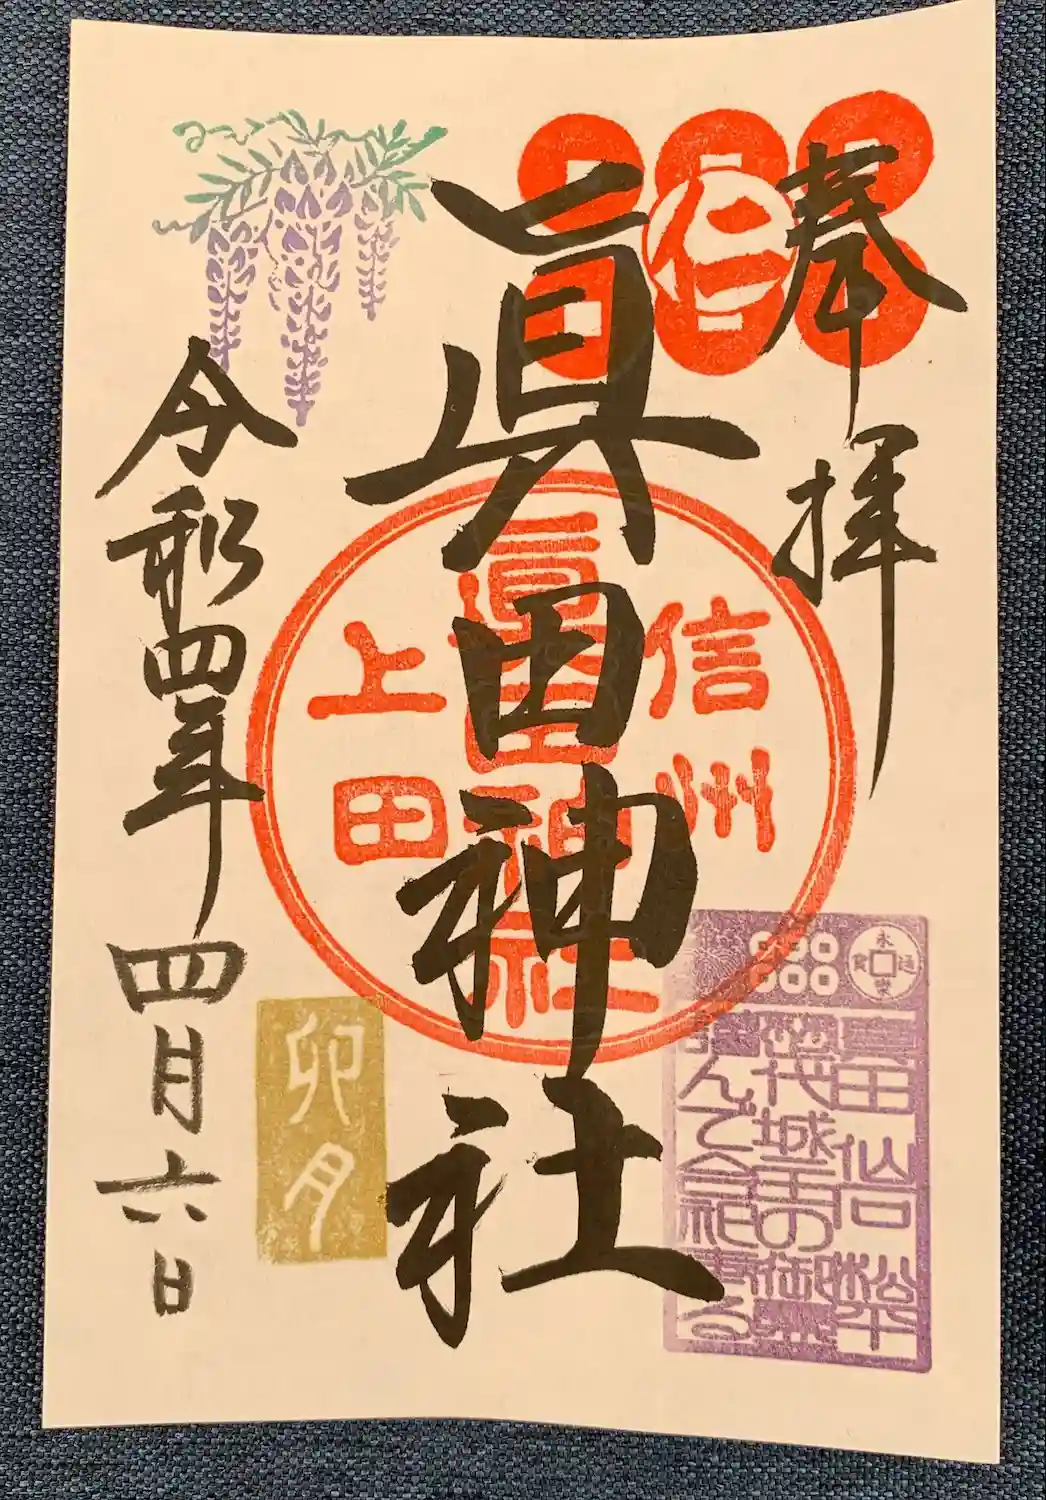 奉拝
仁
眞田神社
信州
眞田神社
上田
永通
樂寳
眞田 仙石 松平
歴代城主の御霊
謹んで合祀奉る
卯月
令和四年四月六日